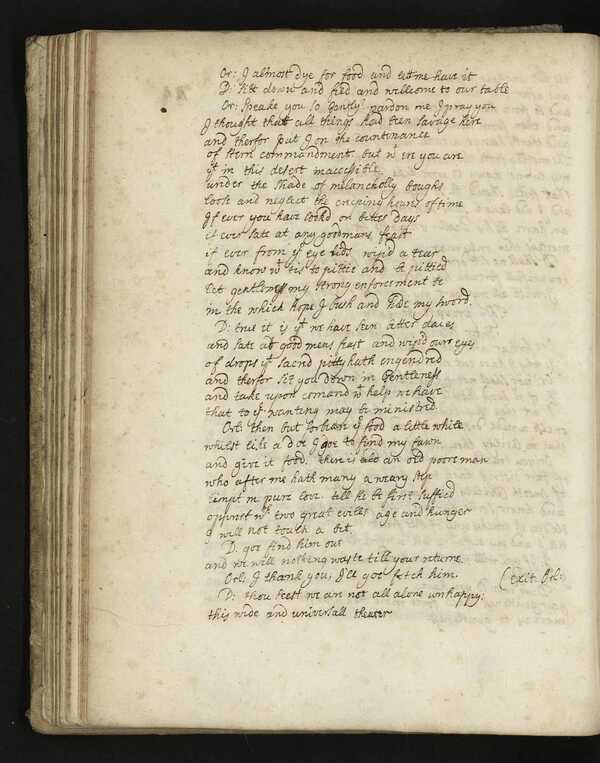 Or: I almost dye for food and lett me have it
D: Sitt down and feed and wellcome to our table
Or: Speake you so gently: pardon me I pray you
I thought that all things had been savage here
and therfor put I on the countinance
of stern commandment. but wt ere you are
yt in this desert inaccesible,
under the shade of melancholly boughs
loose and neglect the creeping hours of time
If ever you have lookd on better days
if ever sate at any good mans feast
if ever from yr eye lids wip'd a tear
and know wt tis to pittie and be pittied
let gentlenes my strong enforcement be
in the which hope I blush and hide my sword.
D: true it is yt we have seen better daies
and sate att good mens feast and wip'd our eyes
of drops yt sacred pitty hath engendred
and therfor sitt you down in Gentleness
and take upon comand wt help we have
that to yr wanting may be ministred
Orl: then but forbear yr food a little while
whilst like a doe I goe to find my fawn
and give it food. there is also an old poore man
who after me hath many a weary step
limpt in pure love. till he be first sufficd
opprest wth two great evills age and hunger
I will not touch a bit.
D: goe find him out
and we will nothing waste till your returne
Orl: I thank you, I'll goe fetch him. (exit. Orl:
D: thou seest we are not all alone unhappy:
this wide and universall theater